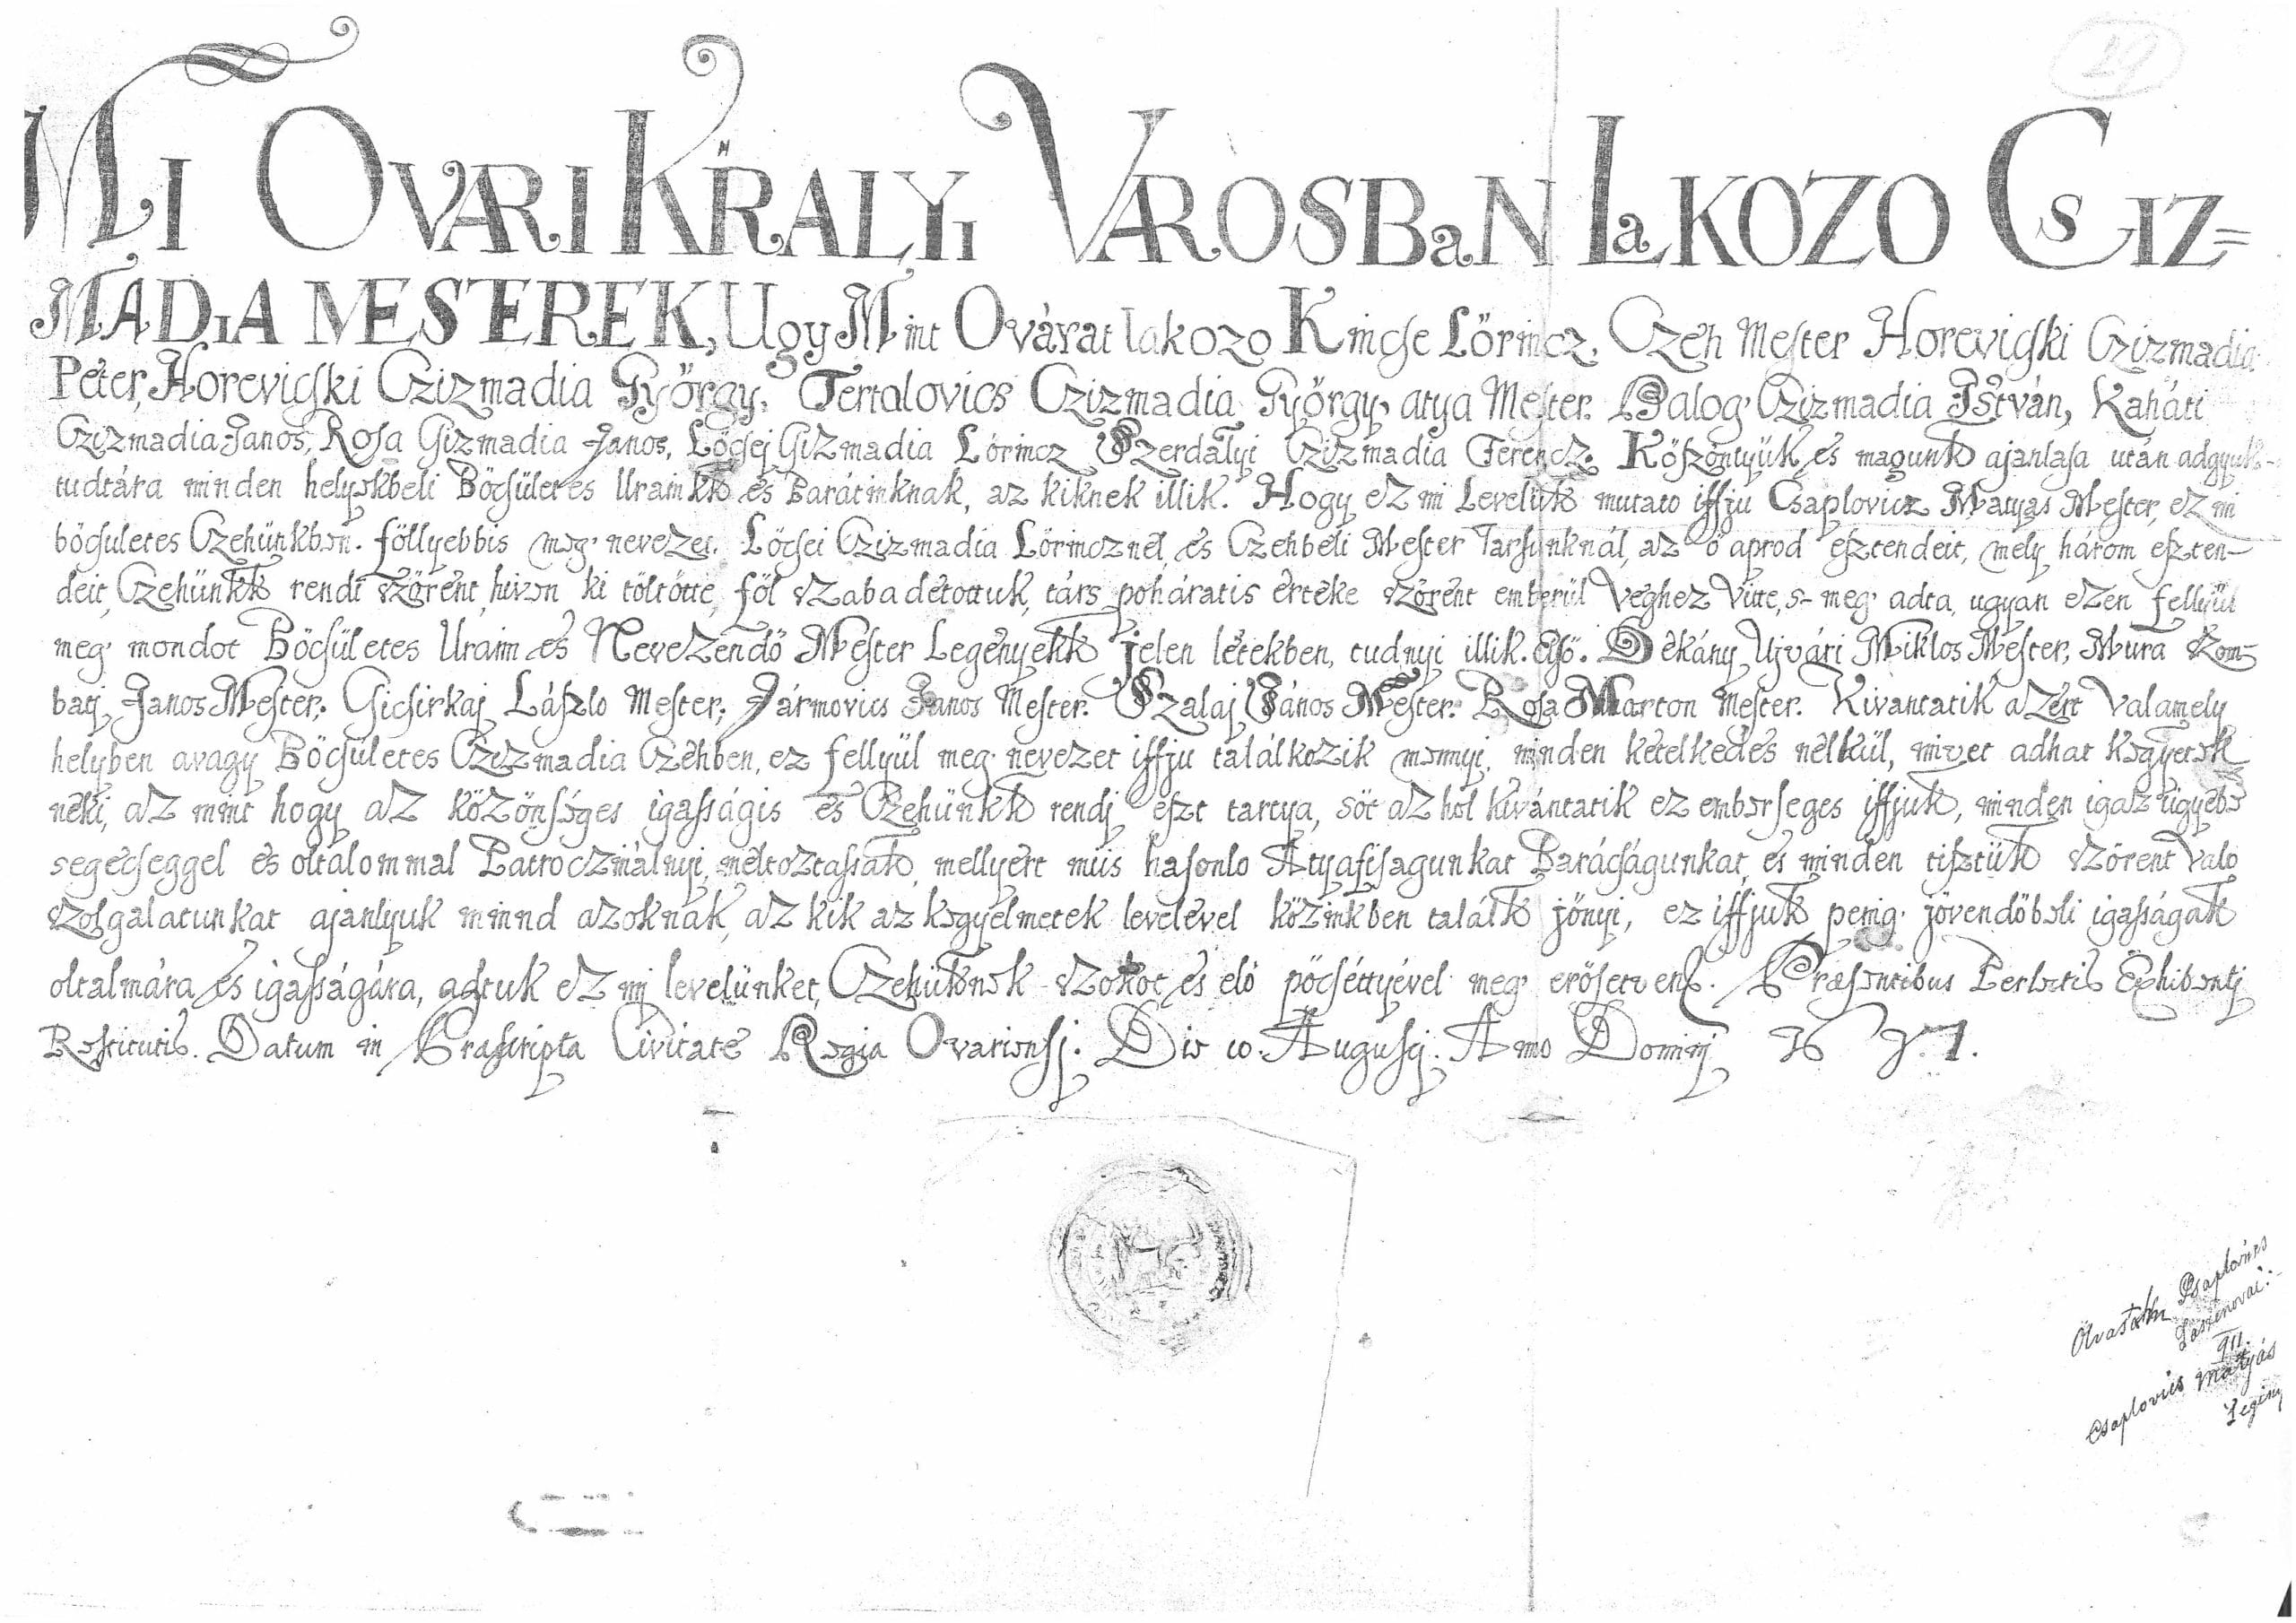 29
MI OVARI KIRALYI VAROSBaN LaKOZO CsIZ=
MADIA MESTEREK, Ugy Mint Ovárat lakozo Kincse Lőrincz, Czeh Mester Horevicski Czizmadia
Péter, Horevicski Czizmadia György, Tertalovics Czizmadia György, atya Mester. Balog Czizmadia István, Kaháti
Czizmadia Janos, Rosa Cizmadia Janos, Lőcsej Cizmadia Lőrincz Szerdalyi Czizmadia Ferencz. Köszöntyük és magunk ajanlasa után adgyuk
tudtára minden helyekbeli Böcsületes Uraink és Barátinknak, az kiknek illik. Hogy ez mi Levelünk mutato iffju Csaplovicz Matyas Mester, ez mi
böcsuletes Czehünkben. föllyebbis meg nevezet. Löcsei Czizmadia Lőrincznél, és Czehbeli Mester Tarsunknál, az ő aprod esztendeit, mely három eszten-
deit, Czehünkk rendi szörént, hiven ki töltötte, föl szabadétottuk, társ poháratis értéke szörént emberül Véghez Vitte, s- meg adta, ugyan ezen fellyül
meg mondot Böcsületes Uraim és Nevezendő Mester Legényekk jelen létekben, tudnyi illik. Első. Dékány Ujvári Miklos Mester, Mura Szom-
batj Janos Mester; Gicsirkaj László Mester; Jármovics Janos Mester. Szalaj János Mester. Rosa Marton Mester. Kivantatik azért Valamely
helyben avagy Böcsuletes Czizmadia Czéhben, ez fellyül meg nevezet iffju találkozik mennyi, minden kételkedés nélkül, mivet adhat kegyetek
néki, az mint hogy az közönséges igasságis és Czehünkk rendj eszt tartya, söt az hol kivántatik ez emberseges iffjuk, minden igaz ügyébe
segétseggel és oltálommal Patroczinálnyi, méltoztassak, mellyért müis hasonlo Atyafisagunkat Barátságunkat, és minden tisztük szörent Valo
szolgalatunkat ajanlyuk minnd azoknak, az kik az kegyelmetek levelével közinkben talált jönyi, ez iffjuk penig jövendöbeli igasságak
oltalmára és igasságára, adtuk ez mi levelünket, Czehünknek szokot és elő pöcséttyével meg erősetven. Præsentibus Perlectis Exhibentj
Restitutis. Datum in Præscripta Civitate Regia Ovariensj. Die 10. Augustj. Anno Dominj 1671.
Olvastam Csaplovics
911.
Csaplovics Mátyás
Legény